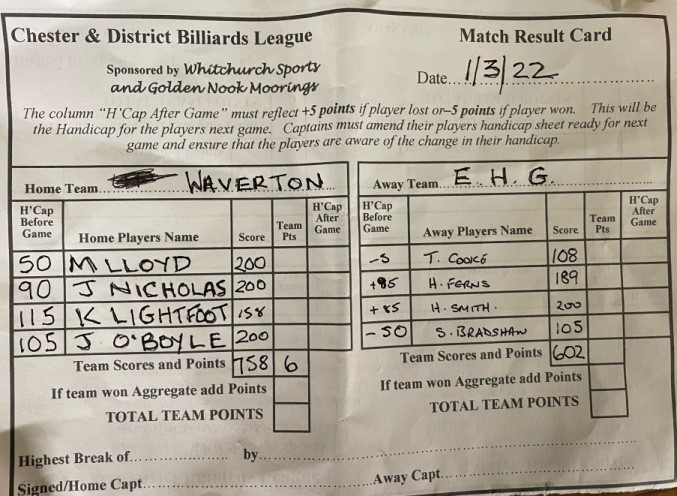 Chester & District Billiards League
Match Result Card
Sponsored by Whitchurch Sports
and Golden Nook Moorings
Date...1/3/22...
The column "H'Cap After Game" must reflect +5 points if player lost or–5 points if player won. This will be
the Handicap for the players next game. Captains must amend their players handicap sheet ready for next
game and ensure that the players are aware of the change in their handicap.
Home Team... WAVERTON
Away Team... E. H. G.
H'Cap Before Game Home Players Name Score Team Pts H'Cap After Game
50 M LLOYD 200
90 J NICHOLAS 200
115 K LIGHTFOOT 158
105 J. O'BOYLE 200
Team Scores and Points 758 6
If team won Aggregate add Points
TOTAL TEAM POINTS
H'Cap Before Game Away Players Name Score Team Pts H'Cap After Game
-5 T. COOKE 108
H. FERNS 189
H. SMITH. 200
-50 S. BRADSHAW 105
Team Scores and Points 602
If team won Aggregate add Points
TOTAL TEAM POINTS
Highest Break of... by...
Signed/Home Capt... Away Capt...